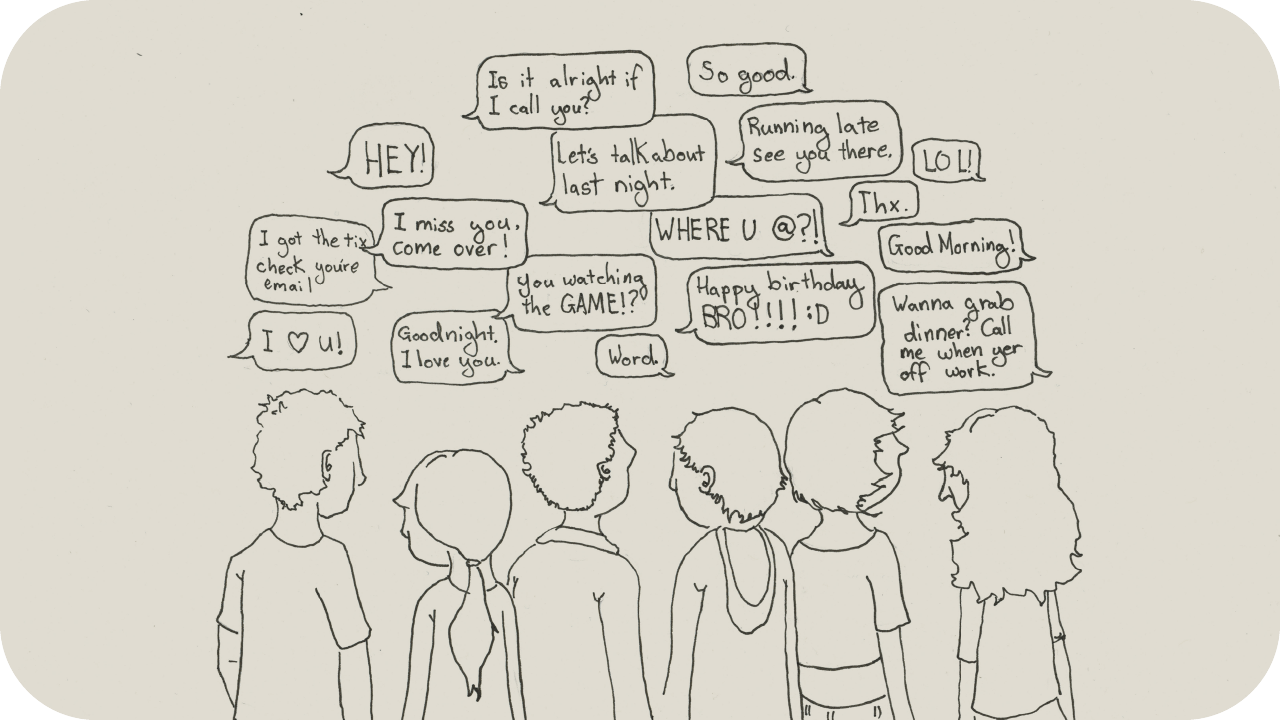 Is it alright if
I call you?
So good.
HEY!
Let's talk about
last night.
Running late
see you there.
LOL!
Thx.
I got the tix
check you're
email
I miss you,
come over!
WHERE U @?!
Good Morning!
you watching
the GAME!??
Happy birthday
BRO!!!! :D
Wanna grab
dinner? Call
me when yer
off work.
I ♡ u!
Goodnight.
I love you.
Word.